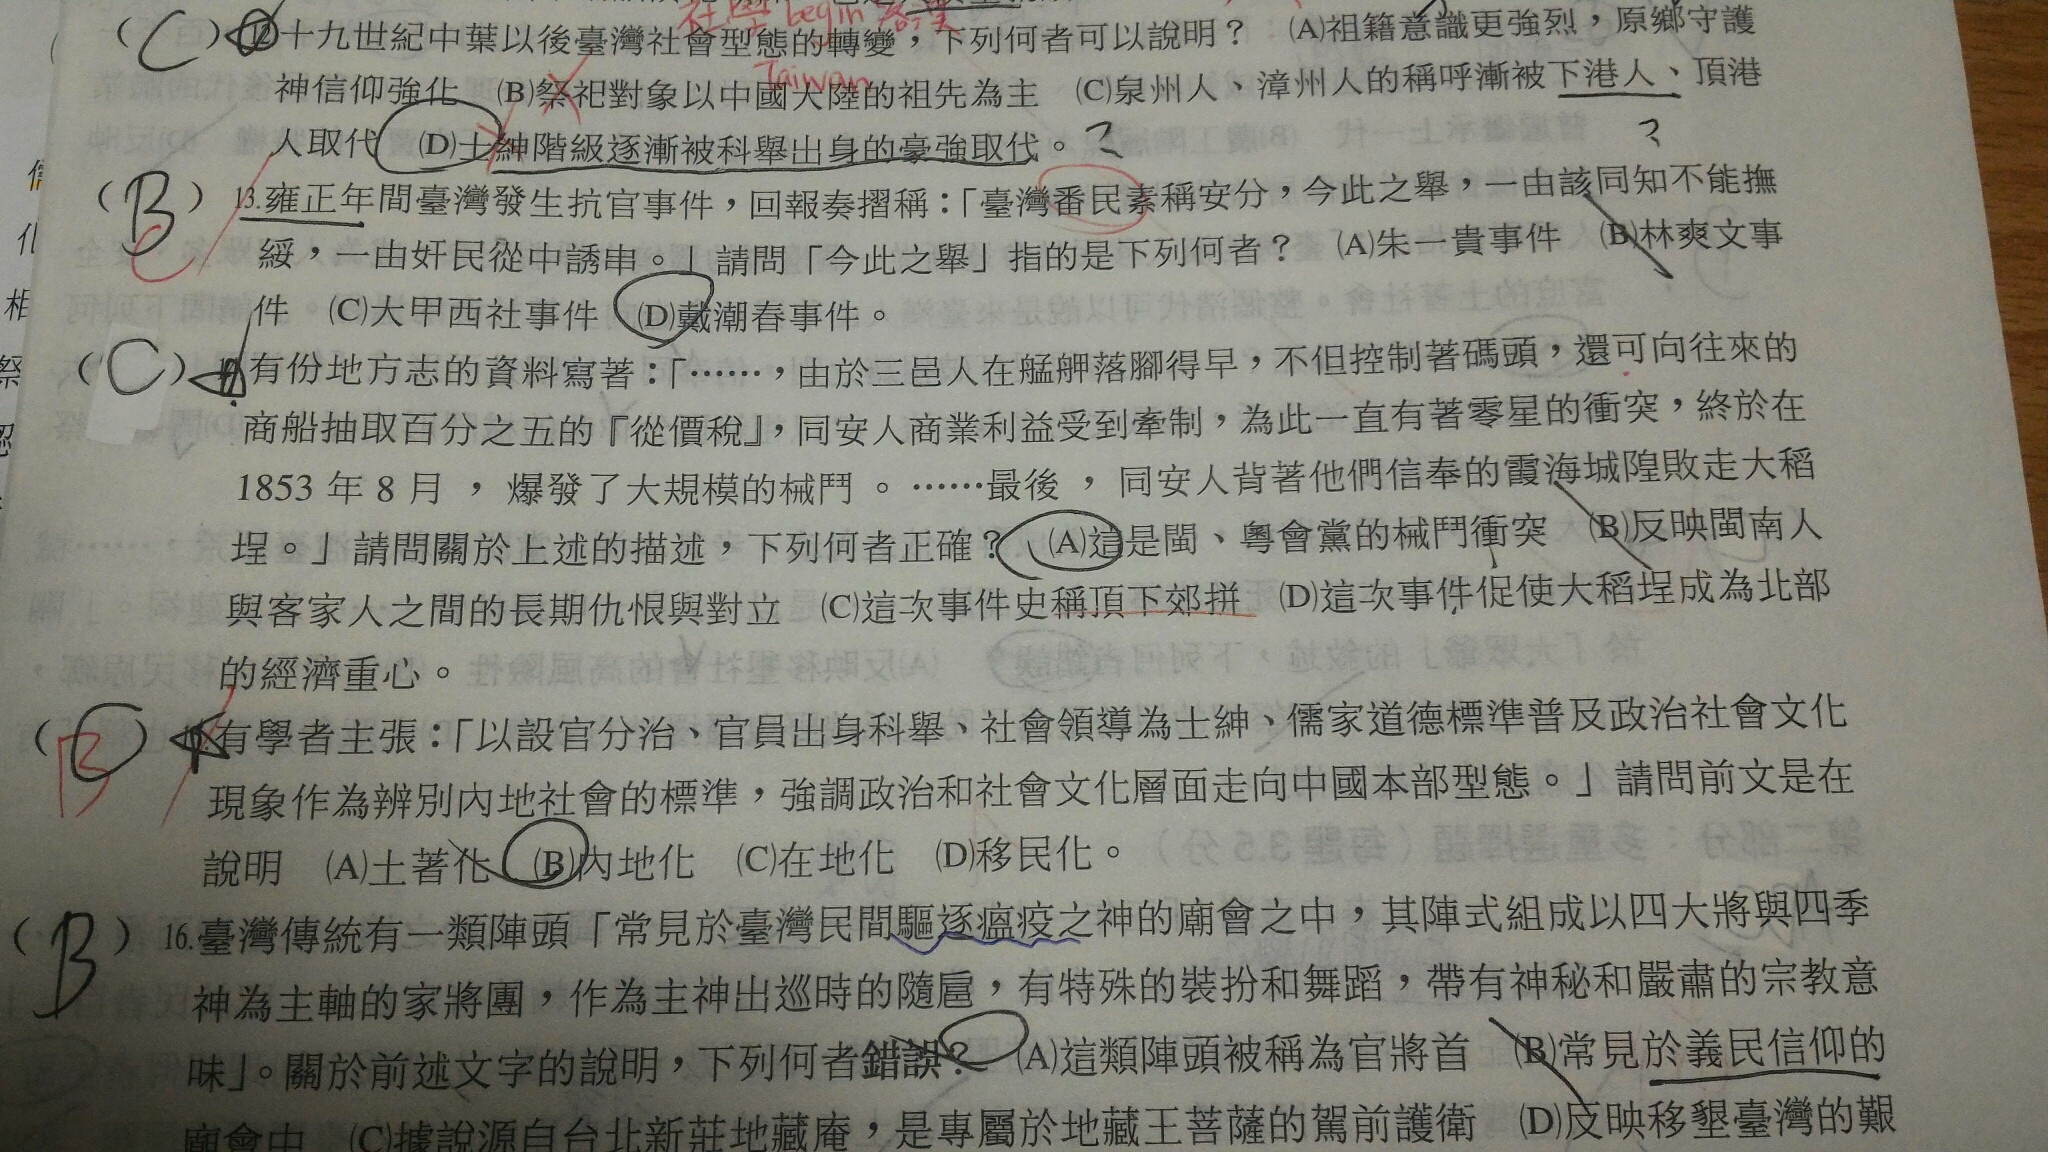 社學 begin 答案
(C) 十九世紀中葉以後臺灣社會型態的轉變，下列何者可以說明？ (A)祖籍意識更強烈，原鄉守護
Taiwan
神信仰強化 (B)祭祀對象以中國大陸的祖先為主 (C)泉州人、漳州人的稱呼漸被下港人、頂港
人取代 (D)士紳階級逐漸被科舉出身的豪強取代。 ? ?
(B) 13.雍正年間臺灣發生抗官事件，回報奏摺稱：「臺灣番民素稱安分，今此之舉，一由該同知不能撫
C
綏，一由奸民從中誘串。」請問「今此之舉」指的是下列何者？ (A)朱一貴事件 (B)林爽文事
件 (C)大甲西社事件 (D)戴潮春事件。
(C) 有份地方志的資料寫著：「……，由於三邑人在艋舺落腳得早，不但控制著碼頭，還可向往來的
商船抽取百分之五的『從價稅』，同安人商業利益受到牽制，為此一直有著零星的衝突，終於在
1853 年 8 月 ， 爆發了大規模的械鬥 。 ……最後 ， 同安人背著他們信奉的霞海城隍敗走大稻
埕。」請問關於上述的描述，下列何者正確？ (A)這是閩、粵會黨的械鬥衝突 (B)反映閩南人
與客家人之間的長期仇恨與對立 (C)這次事件史稱頂下郊拼 (D)這次事件促使大稻埕成為北部
的經濟重心。
(C) 有學者主張：「以設官分治、官員出身科舉、社會領導為士紳、儒家道德標準普及政治社會文化
B
現象作為辨別內地社會的標準，強調政治和社會文化層面走向中國本部型態。」請問前文是在
說明 (A)土著化 (B)內地化 (C)在地化 (D)移民化。
(B) 16.臺灣傳統有一類陣頭「常見於臺灣民間驅逐瘟疫之神的廟會之中，其陣式組成以四大將與四季
神為主軸的家將團，作為主神出巡時的隨扈，有特殊的裝扮和舞蹈，帶有神秘和嚴肅的宗教意
味」。關於前述文字的說明，下列何者錯誤？ (A)這類陣頭被稱為官將首 (B)常見於義民信仰的
廟會中 (C)據說源自台北新莊地藏庵，是專屬於地藏王菩薩的駕前護衛 (D)反映移墾臺灣的艱